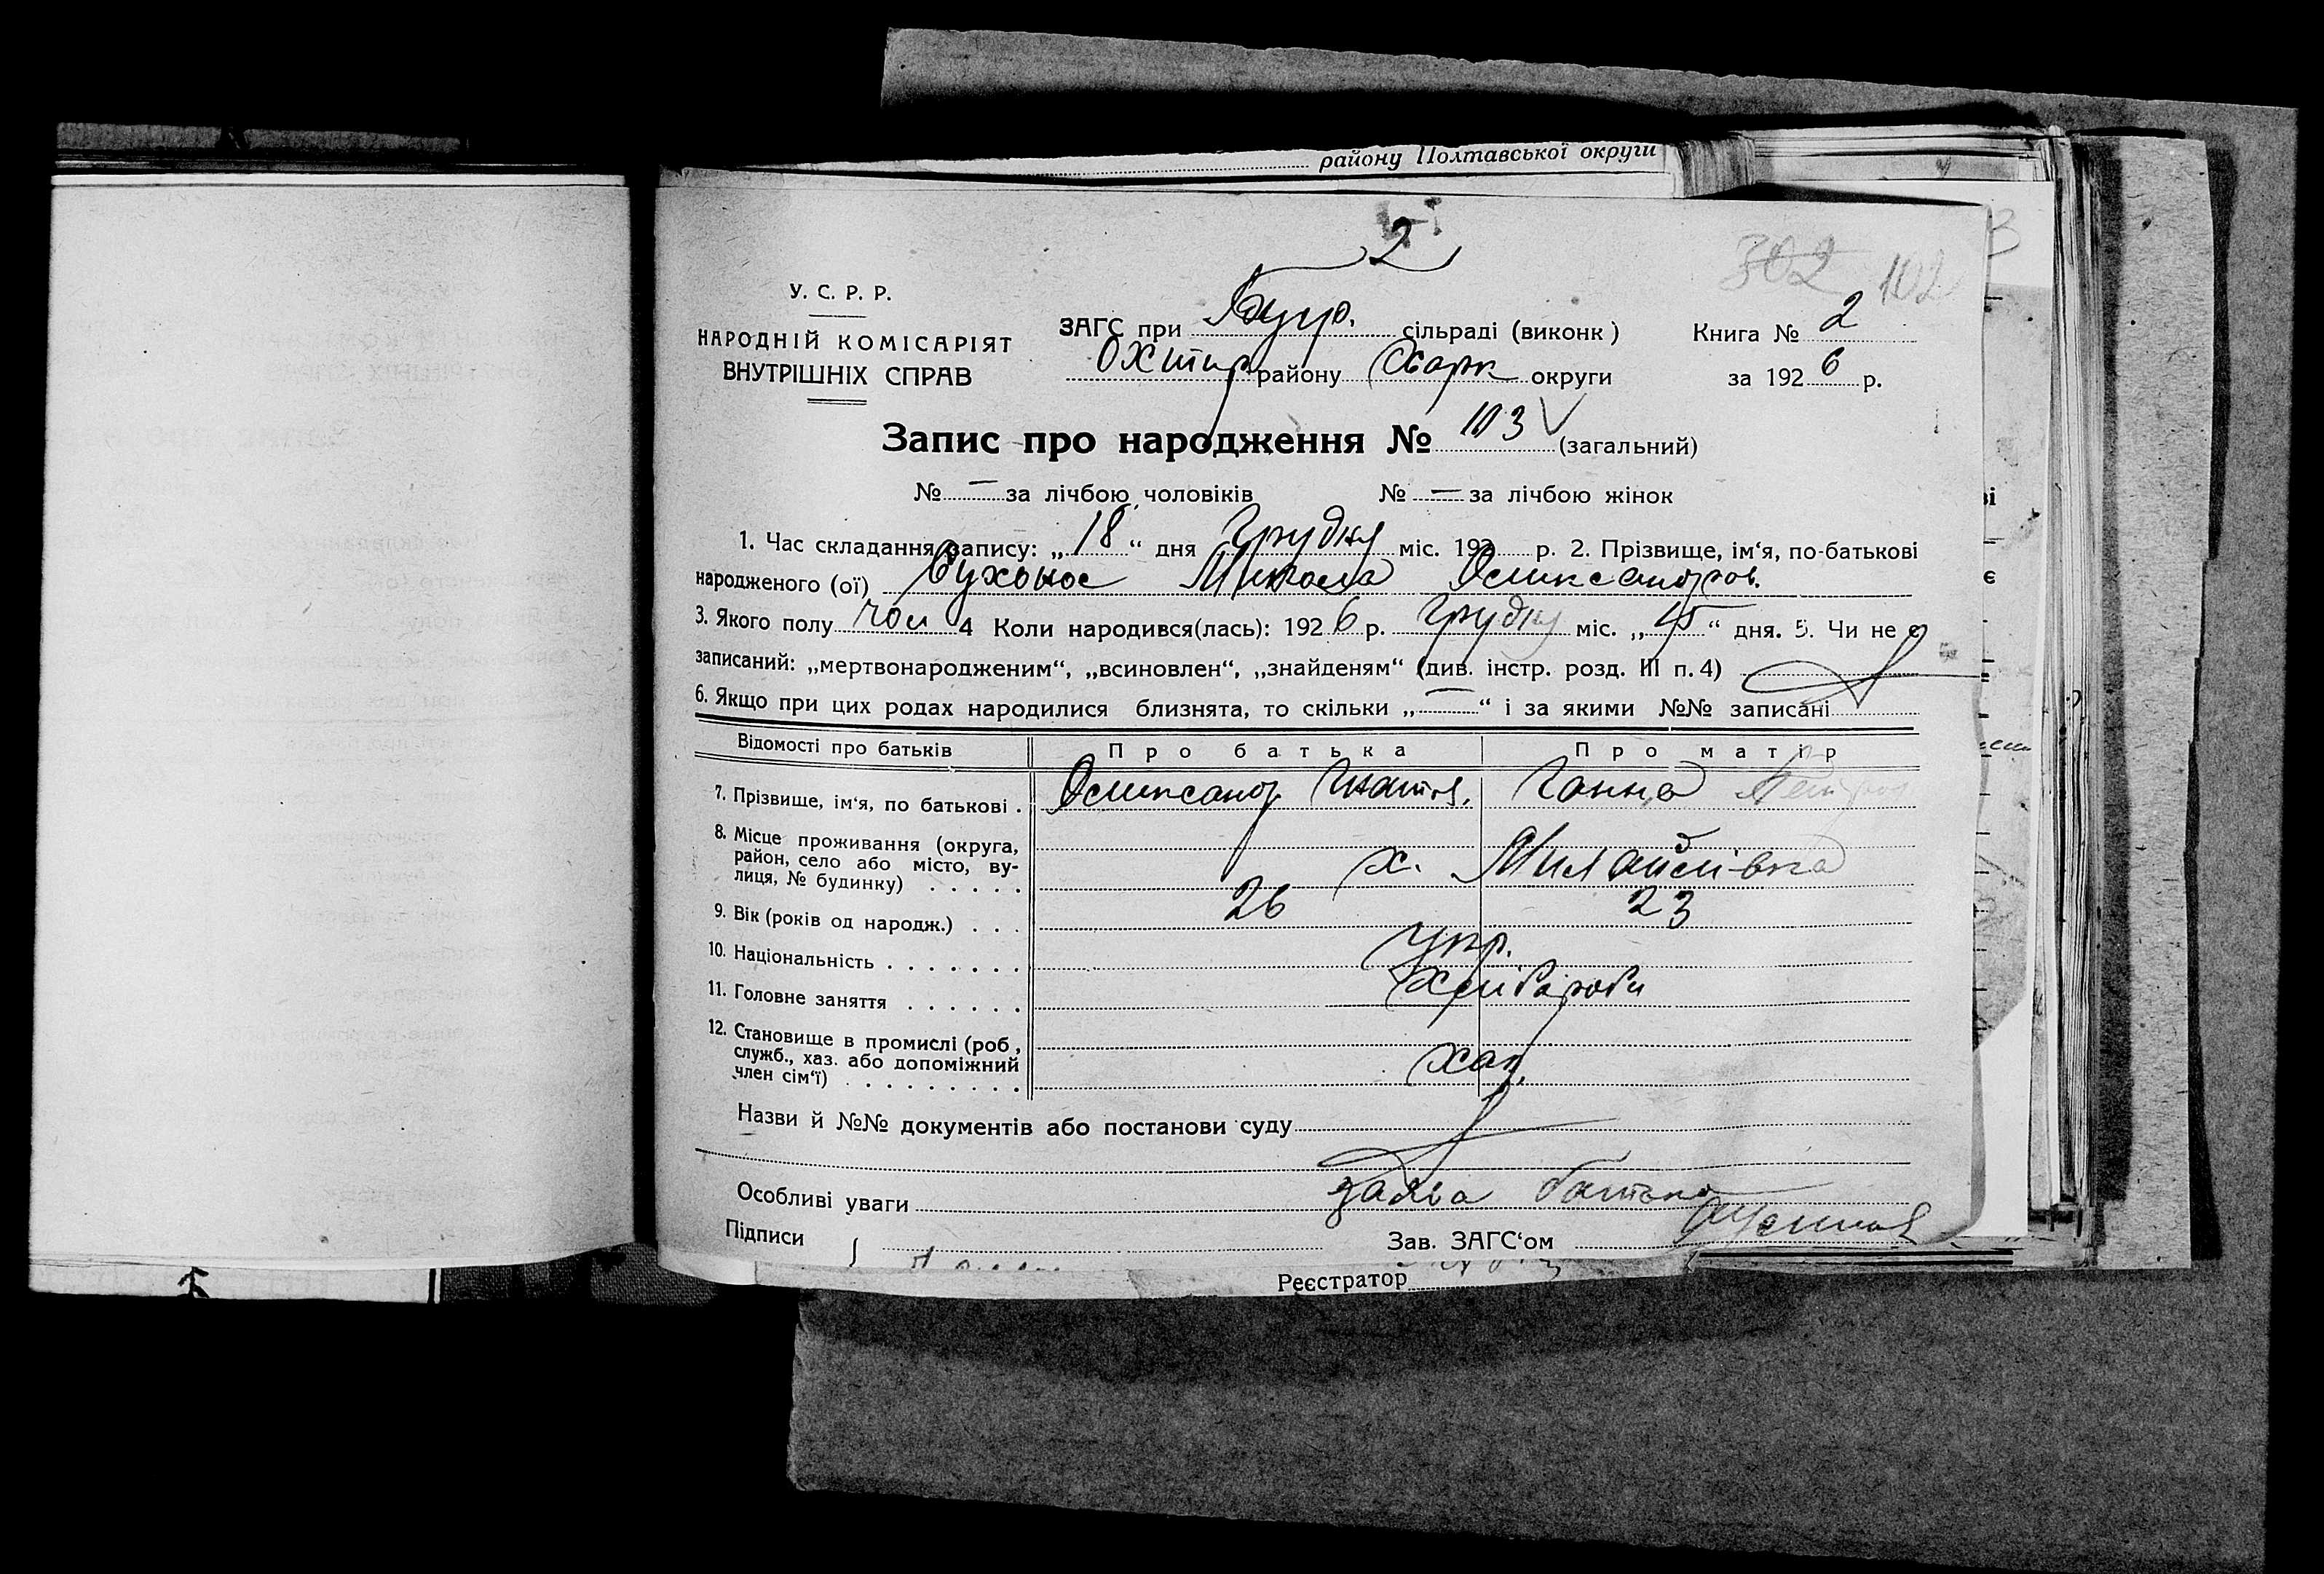 району Полтавської округи
2
302 102
У. С. Р. Р.
НАРОДНІЙ КОМІСАРІЯТ
ВНУТРІШНІХ СПРАВ
ЗАГС при сільраді (виконк)
Охтир району Харк округи
Книга № 2
за 1926 р.
Запис про народження № 103 (загальний)
№ — за лічбою чоловіків № — за лічбою жінок
1. Час складання запису: „18“ дня Грудня міс. 192 р. 2. Прізвище, ім‘я, по-батькові
народженого (ої) Сухонос Микола Олександров.
3. Якого полу чол 4 Коли народився(лась): 1926 р. Грудня міс. „15“ дня. 5. Чи не є
записаний: „мертвонародженим“, „всиновлен“, „знайденям“ (див. інстр. розд. III п. 4)
6. Якщо при цих родах народилися близнята, то скільки „—“ і за якими №№ записані
Відомості про батьків Про батька Про матір
7. Прізвище, ім‘я, по батькові . Олександр Ганна
8. Місце проживання (округа,
район, село або місто, ву-
лиця, № будинку) . . . . . х.
9. Вік (років од народж.) . . . 26 23
10. Національність . . . . . . . Укр.
11. Головне заняття . . . . . . Хліборобы
12. Становище в промислі (роб,
служб., хаз. або допоміжний
член сім‘ї) . . . . . . . . . хаз.
Назви й №№ документів або постанови суду
Особливі уваги заява батька
Підписи Зав. ЗАГС‘ом
Реєстратор